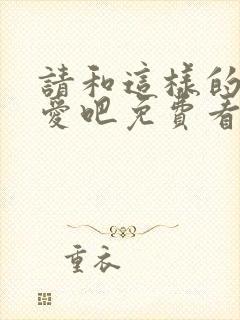 請和這樣的
愛吧免費看
重衣